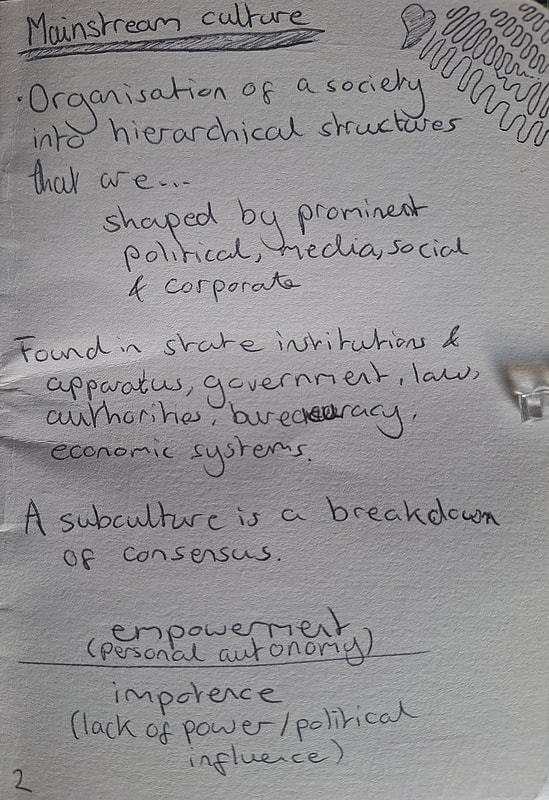 Mainstream culture
· Organisation of a society
into hierarchical structures
that are...
shaped by prominent
political, media, social
& corporate
Found in state institutions &
apparatus, government, law,
authorities, bureaucracy,
economic systems.
A subculture is a breakdown
of consensus.
empowerment
(personal autonomy)
impotence
(lack of power/political
influence)
2